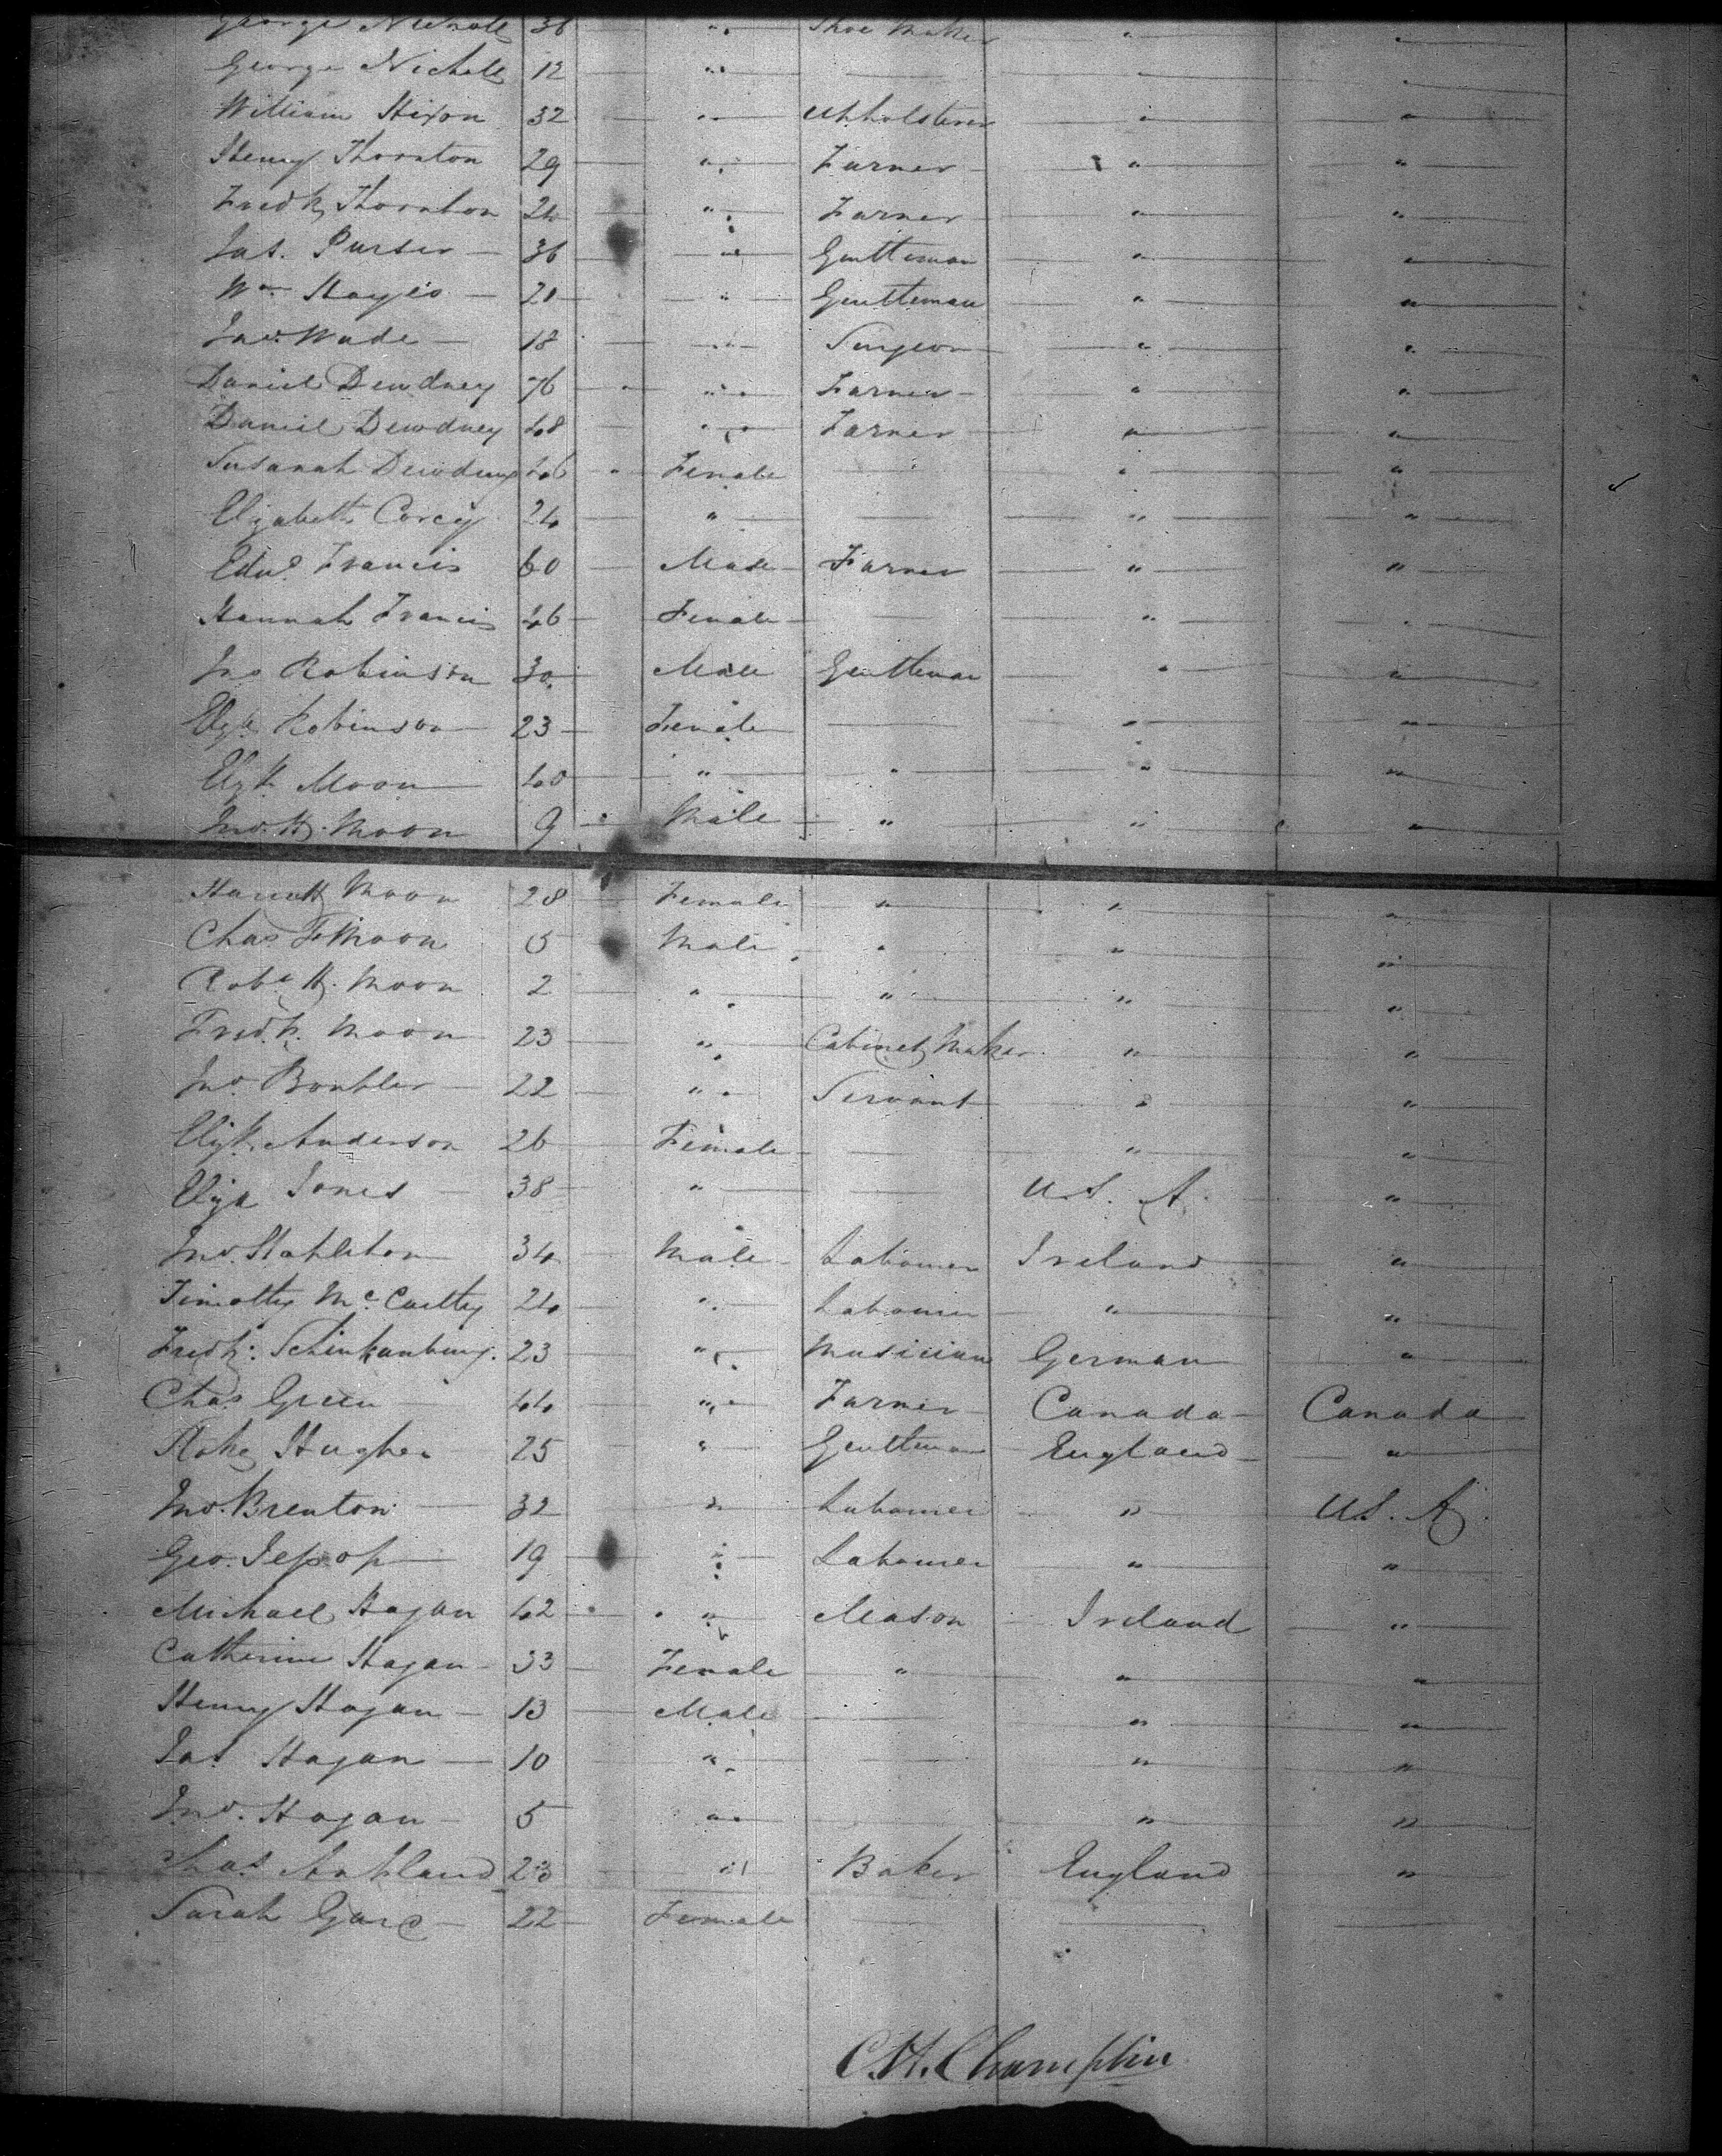 George Nicholls 36 " Shoe Maker " "
George Nicholls 12 " " "
William Hixon 32 " Upholsterer " "
Henry Thornton 29 " Farmer " "
Fredk Thornton 24 " Farmer " "
Jas. Purser 36 " Gentleman " "
Wm Hayes 20 " Gentleman " "
Jno. Wade 18 " Surgeon " "
Daniel Dewdney 76 " Farmer " "
Daniel Dewdney 48 " Farmer " "
Susanah Dewdney 46 Female " "
Elizabeth Corey 24 " " "
Edwd Francis 60 Male Farmer " "
Hannah Francis 46 Female " "
Jno Robinson 30 Male Gentleman " "
Elizh Robinson 23 Female " "
Elizh Moon 40 " " " "
Jno. H. Moon 9 Male " " "
Harriett Moon 28 Female " " "
Chas F Moon 5 Male " " "
Robt H. Moon 2 " " " "
Fredk. Moon 23 " Cabinet Maker " "
Jno. 22 " Servant " "
Elizh Anderson 26 Female " "
Eliza Jones 38 " U.S.A. "
Jno. Stapleton 34 Male Labourer Ireland "
Timothy McCarthy 24 " Labourer " "
Fredk. Schinkanburg. 23 " Musician German "
Chas Green 44 " Farmer Canada Canada
Hughes 25 " Gentleman England "
Jno. Brenton 32 " Labourer " U.S.A.
Geo. 19 " Labourer " "
Michael Hagan 42 " Mason Ireland "
Catherine Hagan 33 Female " " "
Henry Hagan 13 Male " "
Jas Hagan 10 " " "
Jno. Hagan 5 " " "
23 " Baker England "
Sarah 22 Female
C.H. Champlin